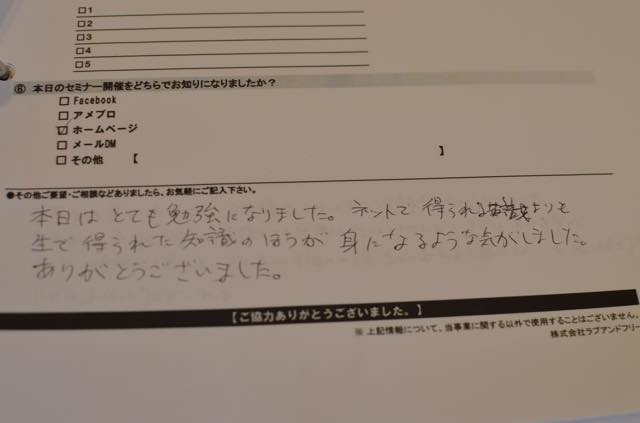 □1
□2
□3
□4
□5
⑥ 本日のセミナー開催をどちらでお知りになりましたか？
□ Facebook
□ アメブロ
☑ ホームページ
□ メールDM
□ その他 【 】
●その他ご要望・ご相談などありましたら、お気軽にご記入下さい。
本日はとても勉強になりました。ネットで得られる知識よりも
生で得られた知識のほうが身になるような気がしました。
ありがとうございました。
【ご協力ありがとうございました。】
※ 上記情報について、当事業に関する以外で使用することはございません。
株式会社ラブアンドフリー